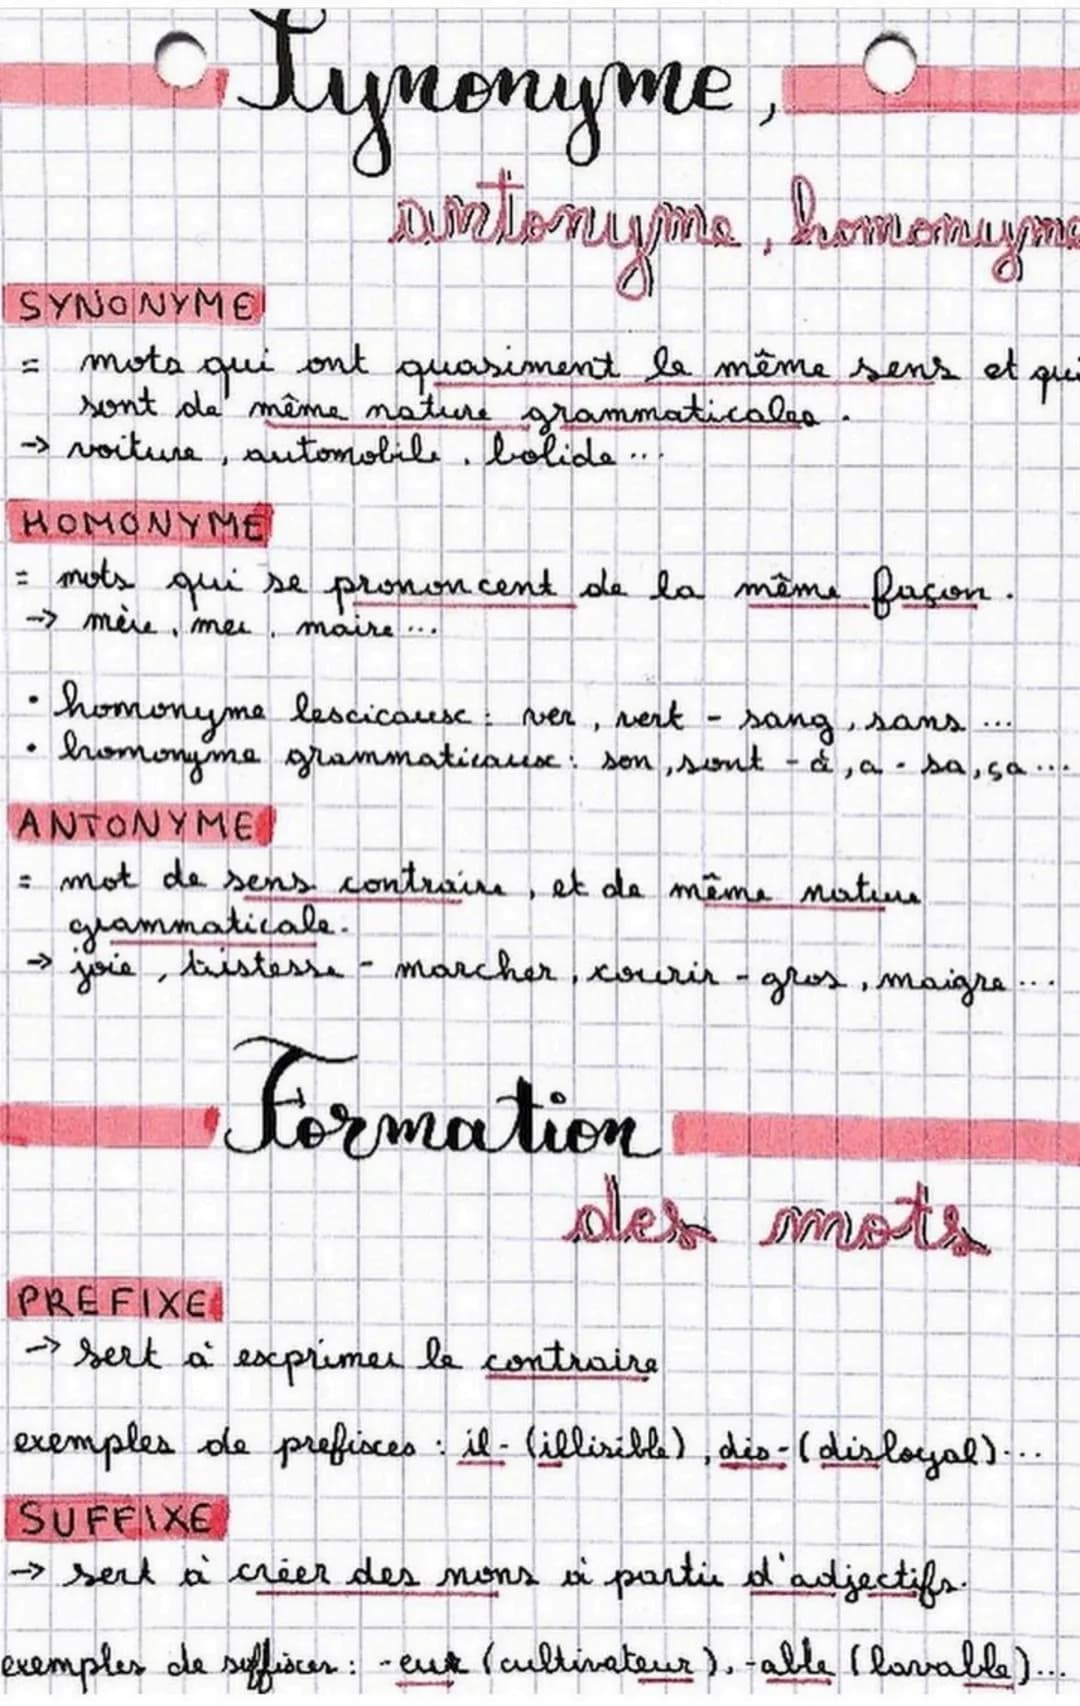 Synonyme,
antonyme, homonyme
SYNONYME
= mots qui ont quasiment le même sens et qui
sont de même nature grammaticales.
→ voiture, automobile, bolide...
HOMONYME
= mots qui se prononcent de la même façon.
→ mère, mer, maire...
• homonyme lescicausc : ver, vert - sang, sans ...
• homonyme grammaticaux : son, sont - à, a - sa, ça...
ANTONYME
= mot de sens contraire, et de même nature
grammaticale.
→ joie, tristesse - marcher, courir - gros, maigre...
Formation
des mots
PREFIXE
→ sert à exprimer le contraire
exemples de prefixes : il- (illisible), dis- (disloyal)...
SUFFIXE
→ sert à créer des noms à partir d'adjectifs.
exemples de suffixes : -eur (cultivateur), -able (lavable)...